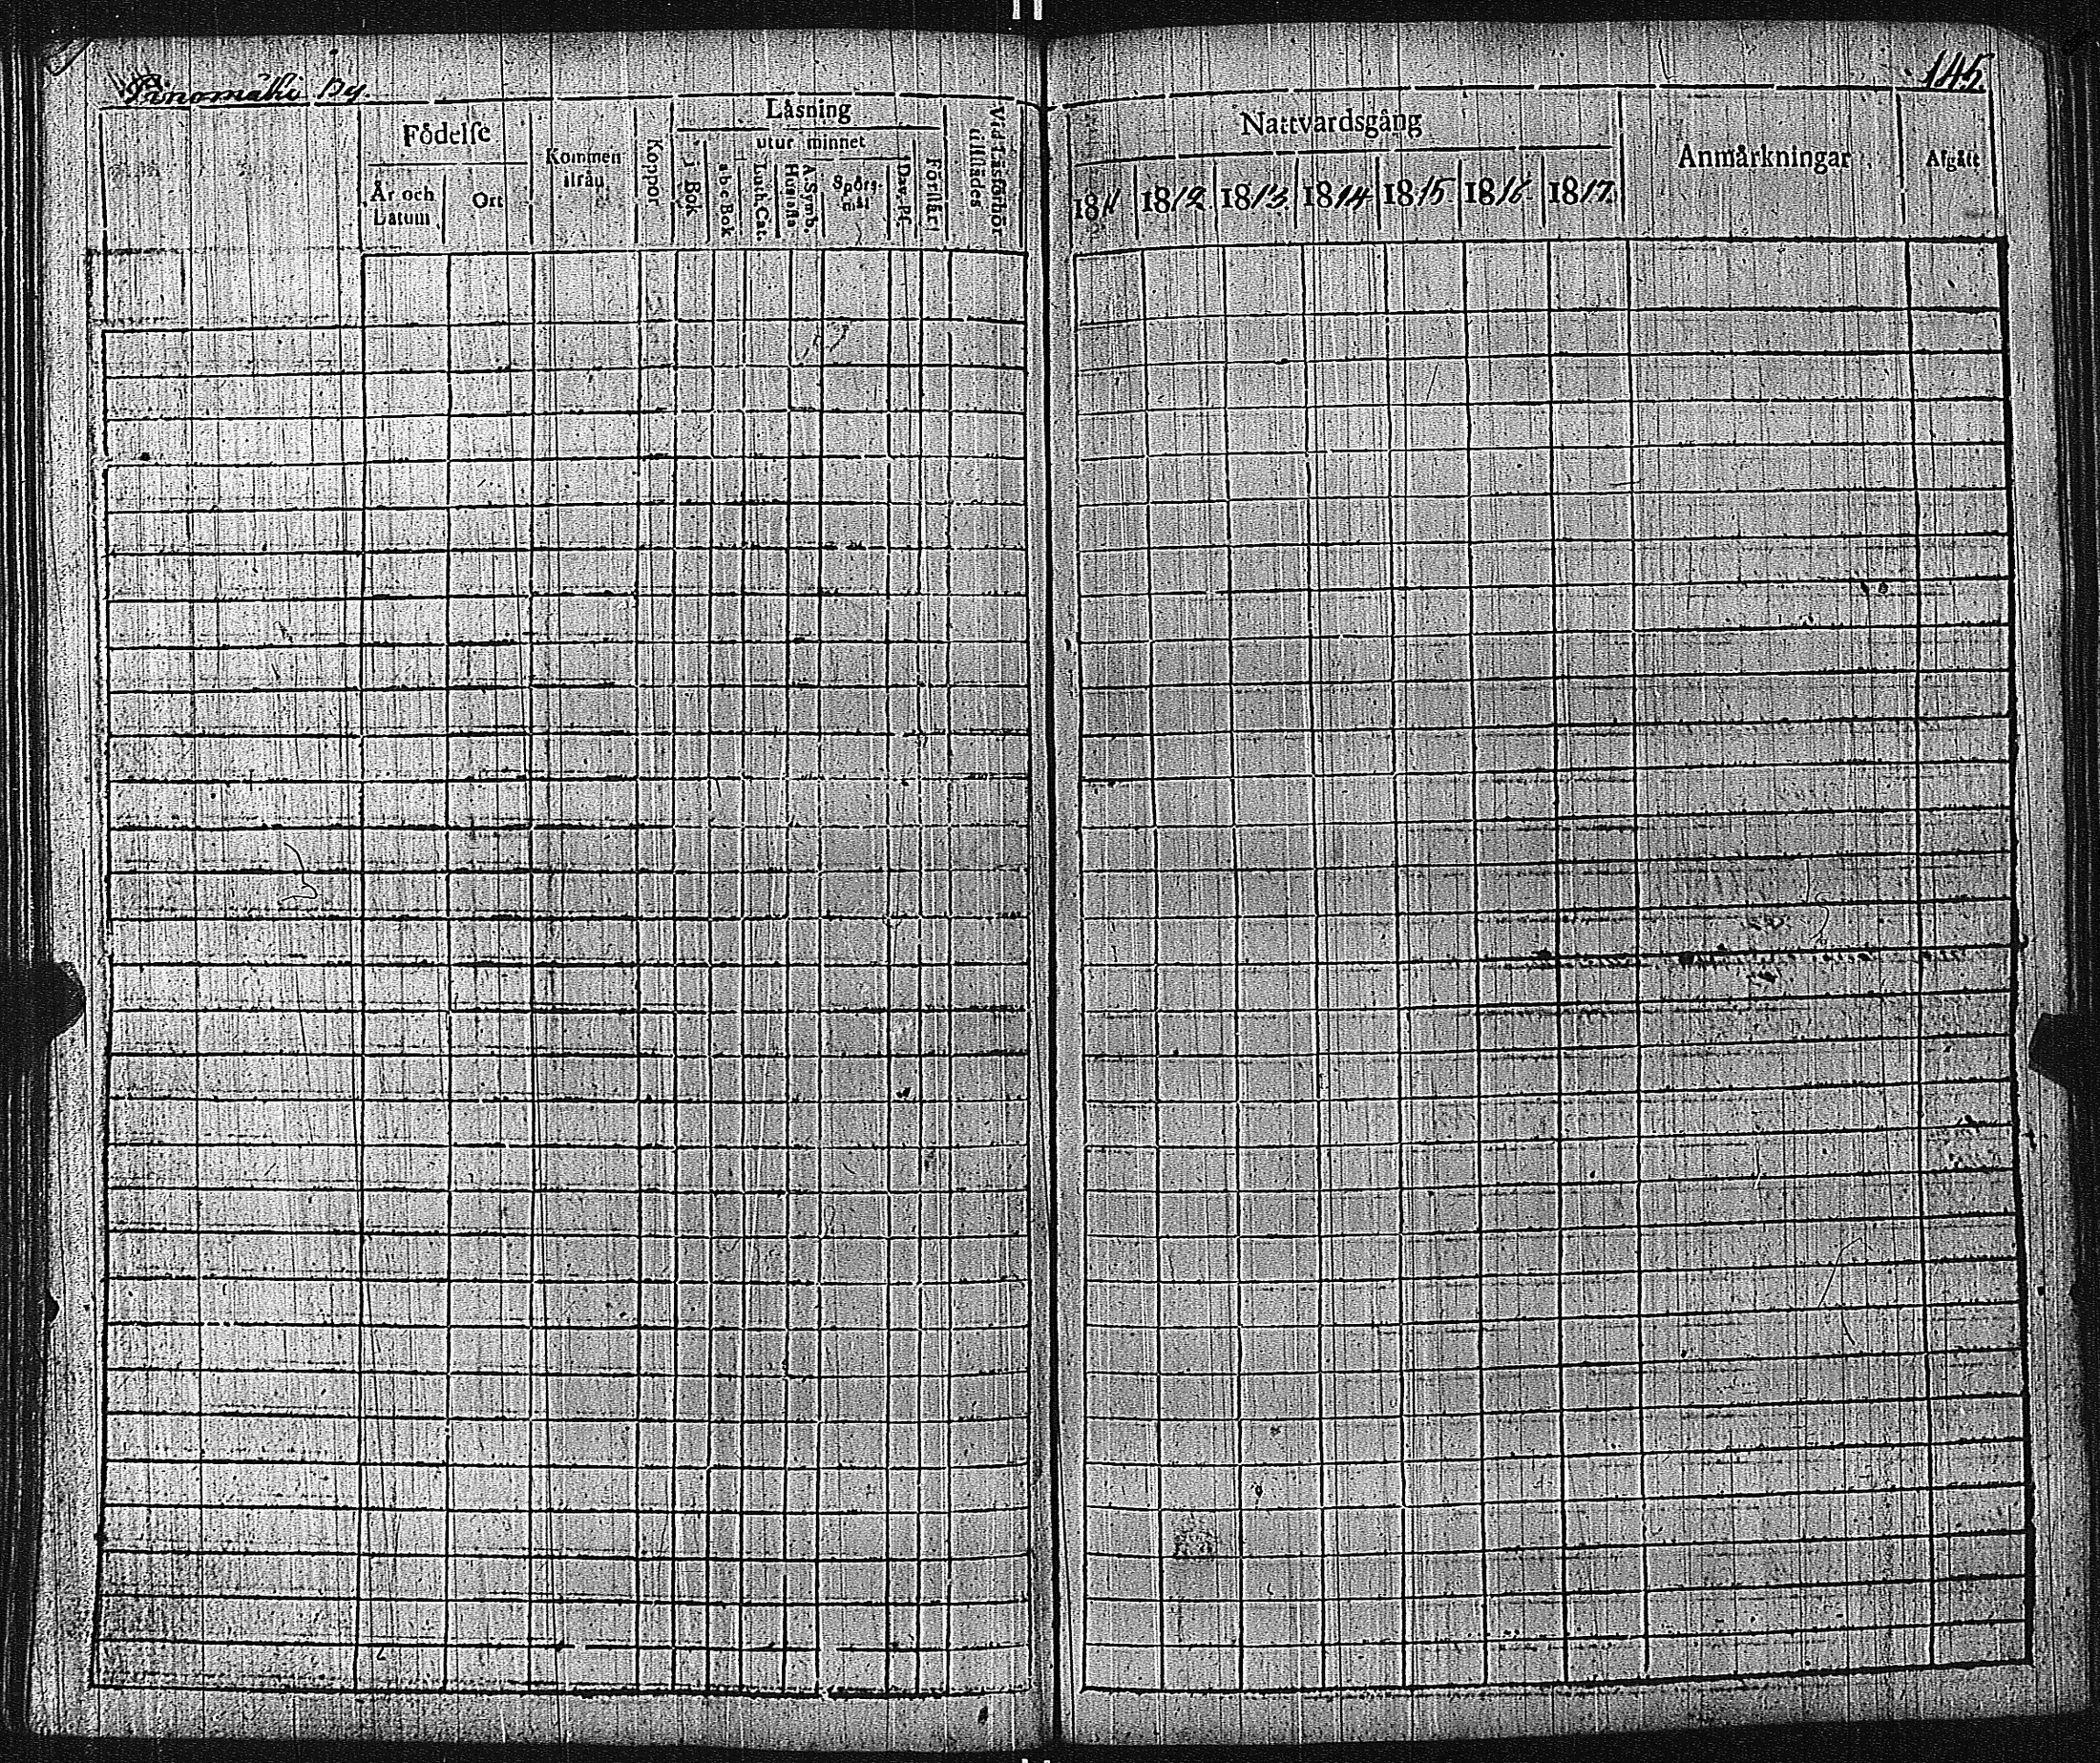 Pinomäki By.
145.
Födelſe
År och Datum
Ort
Kommen ifrån
Koppor
Låsning
i Bok
utur minnet
a b c Bok
Luth. Cat.
Huſtafla
A. Symb.
Spörsmål
Dav. Pſ.
Förſtår
Vid Läsförhör tillſtädes
Nattvardsgång
1811
1812.
1813.
1814
1815
1816.
1817.
Anmärkningar
Afgått